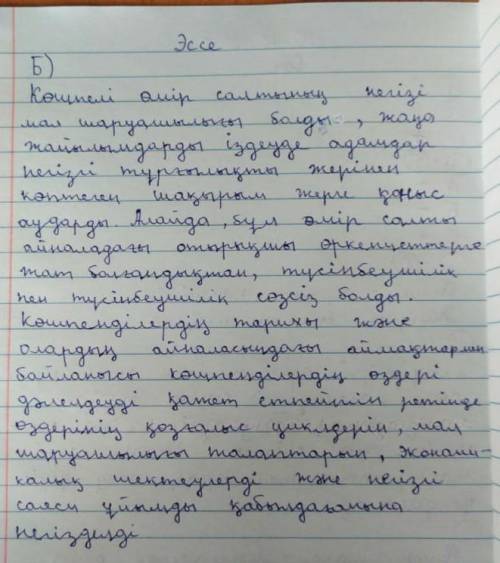 Эссе
Б)
Көшпелі өмір салтының негізі
мал шаруашылығы болды, жаңа
жайылымдарды іздеуде адамдар
негізгі тұрғылықты жерінен
көптеген шақырым жерге қоныс
аударды. Алайда, бұл өмір салты
айналадағы отырықшы өркениеттерге
жат болғандықтан, түсінбеушілік
пен түсінбеушілік сөзсіз болды.
Көшпенділердің тарихы және
олардың айналасындағы аймақтармен
байланысы көшпенділердің өздері
дәлелдеуді қажет етпейтін ретінде
өздерінің қозғалыс циклдерін, мал
шаруашылығы талаптарын, экономи-
калық шектеулерді және негізгі
саяси ұйымды қабылдағанына
негізделді